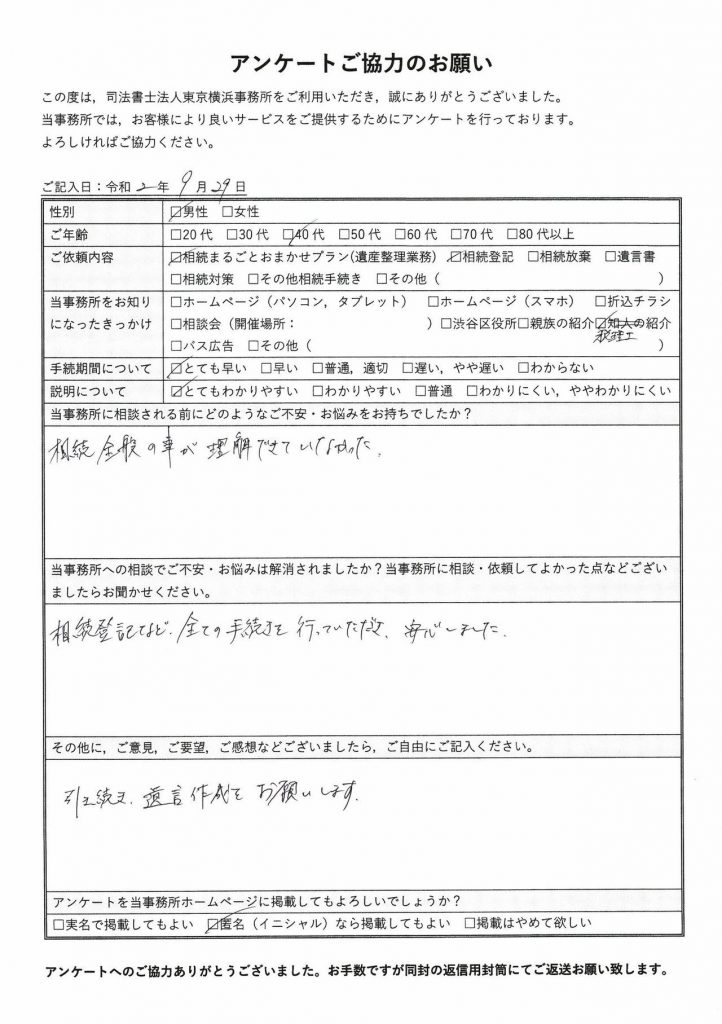 アンケートご協力のお願い
この度は，司法書士法人東京横浜事務所をご利用いただき，誠にありがとうございました。
当事務所では，お客様により良いサービスをご提供するためにアンケートを行っております。
よろしければご協力ください。
ご記入日：令和 2 年 9 月 29 日
性別 ☑男性 □女性
ご年齢 □20 代 □30 代 ☑40 代 □50 代 □60 代 □70 代 □80 代以上
ご依頼内容 ☑相続まるごとおまかせプラン(遺産整理業務) ☑相続登記 □相続放棄 □遺言書
□相続対策 □その他相続手続き □その他（ ）
当事務所をお知り □ホームページ（パソコン，タブレット） □ホームページ（スマホ） □折込チラシ
になったきっかけ □相談会（開催場所： ）□渋谷区役所□親族の紹介☑知人の紹介
税理士
□バス広告 □その他（ ）
手続期間について ☑とても早い □早い □普通，適切 □遅い，やや遅い □わからない
説明について ☑とてもわかりやすい □わかりやすい □普通 □わかりにくい，ややわかりにくい
当事務所に相談される前にどのようなご不安・お悩みをお持ちでしたか？
相続全般の事が理解できていなかった。
当事務所への相談でご不安・お悩みは解消されましたか？当事務所に相談・依頼してよかった点などござい
ましたらお聞かせください。
相続登記など、全ての手続きを行っていただき、安心しました。
その他に，ご意見，ご要望，ご感想などございましたら，ご自由にご記入ください。
引き続き、遺言作成をお願いします。
アンケートを当事務所ホームページに掲載してもよろしいでしょうか？
□実名で掲載してもよい ☑匿名（イニシャル）なら掲載してもよい □掲載はやめて欲しい
アンケートへのご協力ありがとうございました。お手数ですが同封の返信用封筒にてご返送お願い致します。